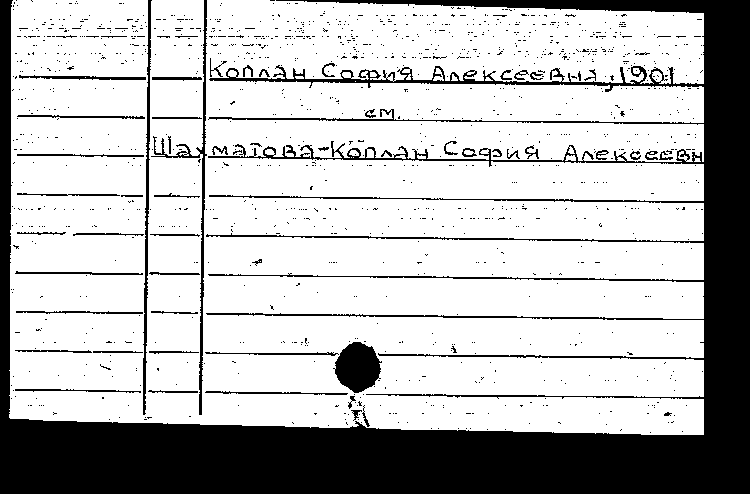 Коплан, София Алексеевна, 1901
см.
Шахматова-Коплан София Алексеевн